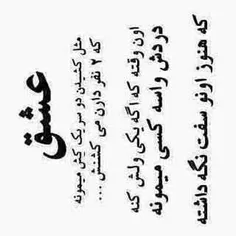 عشق
مثل کشیدن دو سر یک کش میمونه
که ۲ نفر دارن می کشنش ...
اون وقته که اگه یکی ولش کنه
دردش واسه کسی میمونه
که هنوز اونو سفت نگه داشته